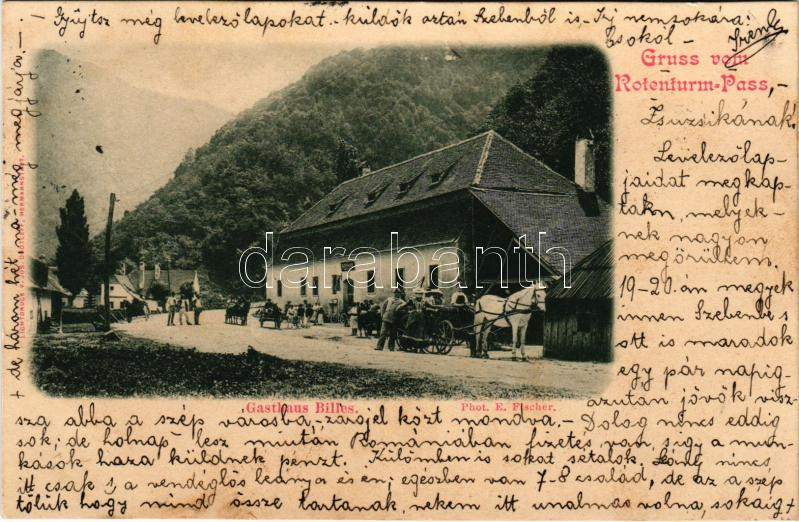 Gyüjtsz még levelezölapokat. küldök aztán Szebenböl is. Irj nemsokára:
Csokol
Irenk
Gruss vom
Rotenturm-Pass,
Zsuzsikának!
Levelezölap-
jaidat megkap-
tam, melyek-
nek nagyon
megörültem.
19-20.án megyek
innen Szebenbe s
ott is maradok
egy pár napig
azután jövök visz-
sza abba a szép városba, zárójel közt mondva. - Dolog nincs eddig
sok; de holnap lesz miután Romániában fizetés van, s igy a mun-
kások haza küldnek pénzt. Külömben is sokat sétálok. Lány nincs
itt csak s a vendéglös leánya és én; egészben van 7-8 család, de az a szép
tölük hogy mind össze tartanak, nekem itt unalmas volna, sokáig +
+ de három hét na meg
megjárja. -
Gasthaus Billes.
Phot. E. Fischer.
darabanth.com